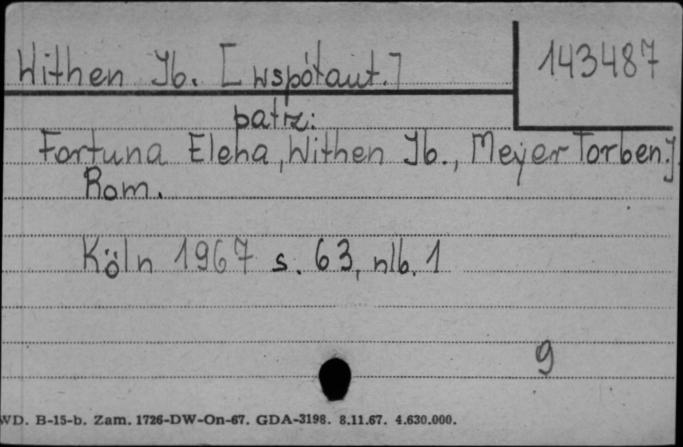 Withen Jb. [współaut.]
143487
patrz:
Fortuna Elena, Withen Jb., Meyer Torben.]
Rom.
Köln 1967 s. 63, nlb. 1
9
WD. B-15-b. Zam. 1726-DW-On-67. GDA-3198. 8.11.67. 4.630.000.